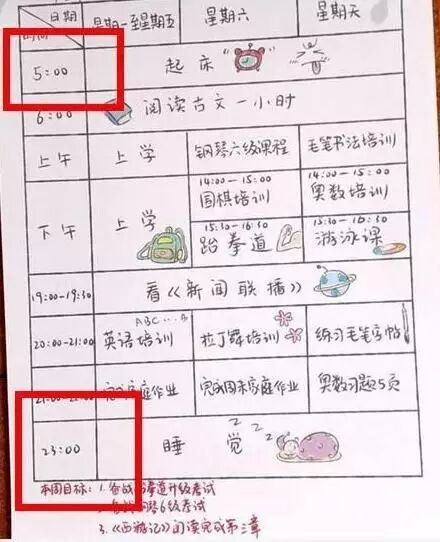 日期
时间
星期一至星期五 星期六 星期天
5:00 起床
6:00 阅读古文一小时
上午 上学 钢琴六级课程 毛笔书法培训
下午 上学
14:00-15:00 14:00-15:00
围棋培训 奥数培训
15:30-16:30 15:30-16:30
跆拳道 游泳课
19:00-19:30 看《新闻联播》
ABC...B
20:00-21:00 英语培训 拉丁舞培训 练习毛笔字帖
家庭作业 完成周末家庭作业 奥数习题5页
23:00 睡觉
z z z
本周目标: 1. 备战跆拳道升级考试
6级考试
3.《西游记》阅读完成第三章